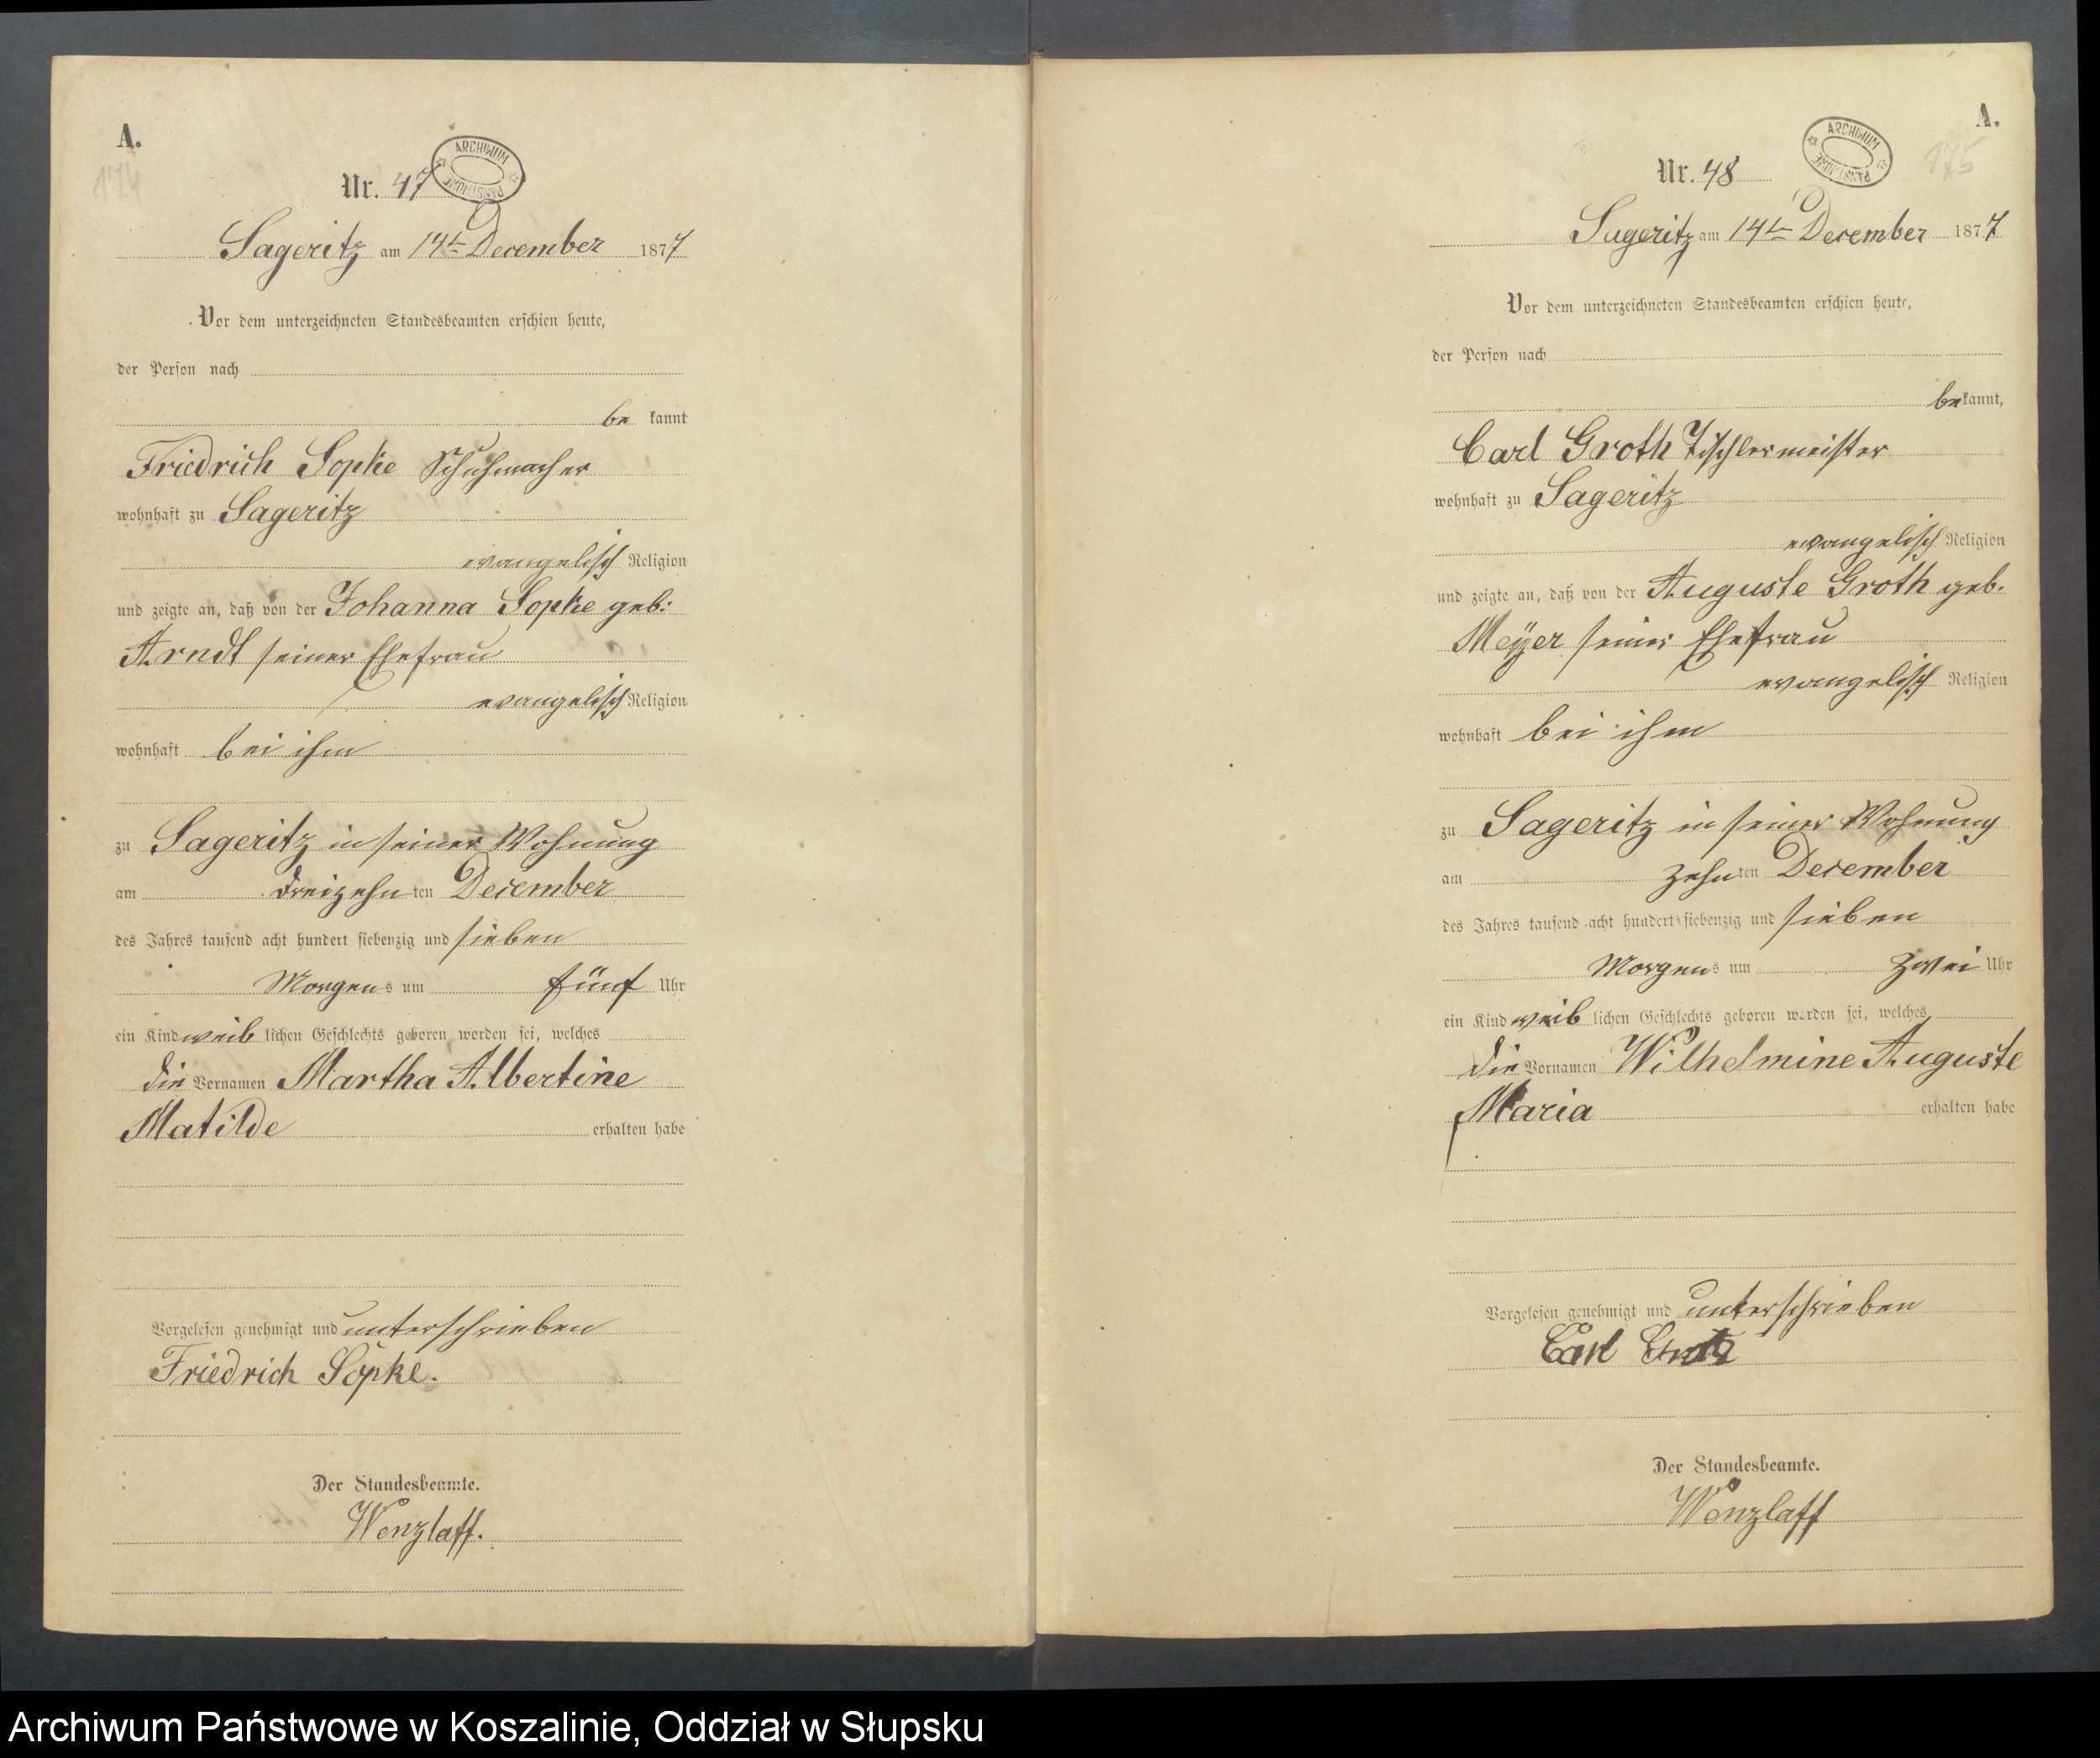 A.
174
Nr. 47
ARCHIWUM PAŃSTWOWE
Sageritz am 14t December 1877
Vor dem unterzeichneten Standesbeamten erschien heute,
der Person nach
be kannt
Friedrich Sopke Schuhmacher
wohnhaft zu Sageritz
evangelisch Religion
und zeigte an, daß von der Johanna Sopke geb:
Arndt seiner Ehefrau
evangelisch Religion
wohnhaft bei ihm
zu Sageritz in seiner Wohnung
am dreizehn ten December
des Jahres tausend acht hundert siebenzig und sieben
Morgens um fünf Uhr
ein Kind weib lichen Geschlechts geboren worden sei, welches
die Vornamen Martha Albertine
Matilde erhalten habe
Vorgelesen genehmigt und unterschrieben
Friedrich Sopke.
Der Standesbeamte.
Wenzlaff.
A.
175
Nr. 48
ARCHIWUM PAŃSTWOWE
Sageritz am 14t December 1877
Vor dem unterzeichneten Standesbeamten erschien heute,
der Person nach
bekannt,
Carl Groth Tischlermeister
wohnhaft zu Sageritz
evangelisch Religion
und zeigte an, daß von der Auguste Groth geb.
Meÿer seiner Ehefrau
evangelisch Religion
wohnhaft bei ihm
zu Sageritz in seiner Wohnung
am zehn ten December
des Jahres tausend acht hundert siebenzig und sieben
Morgens um zwei Uhr
ein Kind weib lichen Geschlechts geboren worden sei, welches
die Vornamen Wilhelmine Auguste
Maria erhalten habe
Vorgelesen genehmigt und unterschrieben
Carl
Der Standesbeamte.
Wenzlaff
Archiwum Państwowe w Koszalinie, Oddział w Słupsku